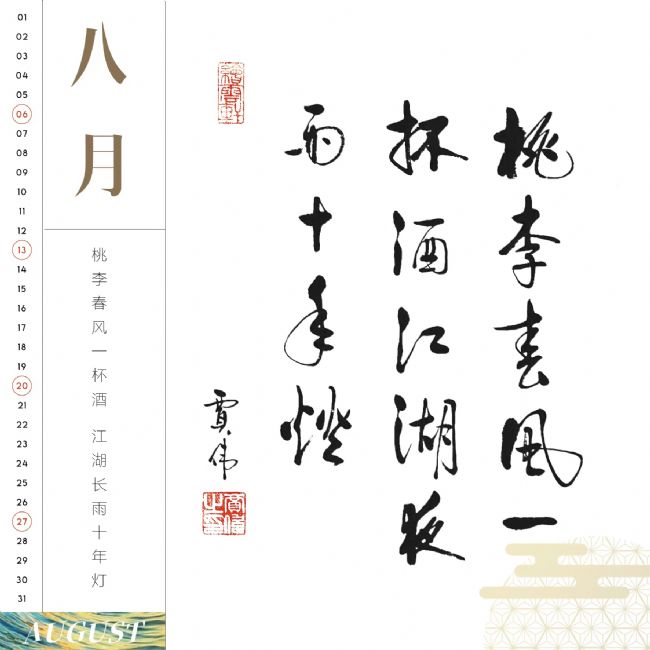 01
02
03
04
05
06
07
08
09
10
11
12
13
14
15
16
17
18
19
20
21
22
23
24
25
26
27
28
29
30
31
八月
桃李春风一杯酒 江湖长雨十年灯
AUGUST
桃李春風一
杯酒江湖夜
雨十年燈
賈偉